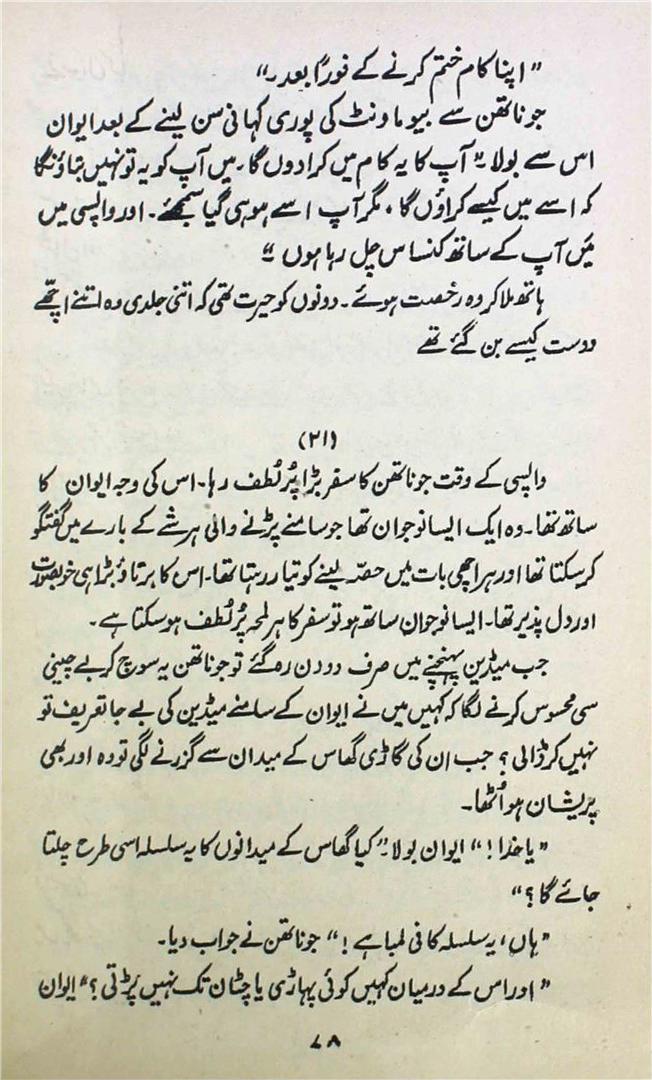 "اپنا کام ختم کرنے کے فوراً بعد۔"
جوناتھن سے بیوماونٹ کی پوری کہانی سن لینے کے بعد ایوان
اس سے بولا۔" آپ کا یہ کام میں کرادوں گا۔ میں آپ کو یہ تو نہیں بتاؤنگا
کہ اسے میں کیسے کراؤں گا، مگر آپ اسے ہو ہی گیا سمجھئے۔ اور واپسی میں
میں آپ کے ساتھ کنساس چل رہا ہوں"
ہاتھ ملا کر وہ رخصت ہوئے۔ دونوں کو حیرت تھی کہ اتنی جلدی وہ اتنے اچھے
دوست کیسے بن گئے تھے
(۲۱)
واپسی کے وقت جوناتھن کا سفر بڑا پُر لُطف رہا۔ اس کی وجہ ایوان کا
ساتھ تھا۔ وہ ایک ایسا نوجوان تھا جو سامنے پڑنے والی ہر شے کے بارے میں گفتگو
کر سکتا تھا اور ہر اچھی بات میں حصّہ لینے کو تیار رہتا تھا۔ اس کا برتاؤ بڑا ہی خوبصورت
اور دل پذیر تھا۔ ایسا نوجوان ساتھ ہو تو سفر کا ہر لمحہ پُر لُطف ہو سکتا ہے۔
جب میڈین پہنچنے میں صرف دو دن رہ گئے تو جوناتھن یہ سوچ کر بے چینی
سی محسوس کرنے لگا کہ کہیں میں نے ایوان کے سامنے میڈین کی بے جا تعریف تو
نہیں کر ڈالی؟ جب ان کی گاڑی گھاس کے میدان سے گزرنے لگی تو وہ اور بھی
پریشان ہو اُٹھا۔
"یا خدا!" ایوان بولا۔" کیا گھاس کے میدانوں کا یہ سلسلہ اسی طرح چلتا
جائے گا؟"
"ہاں، یہ سلسلہ کافی لمبا ہے!" جوناتھن نے جواب دیا۔
"اور اس کے درمیان کہیں کوئی پہاڑی یا چٹان تک نہیں پڑتی؟" ایوان
۷۸